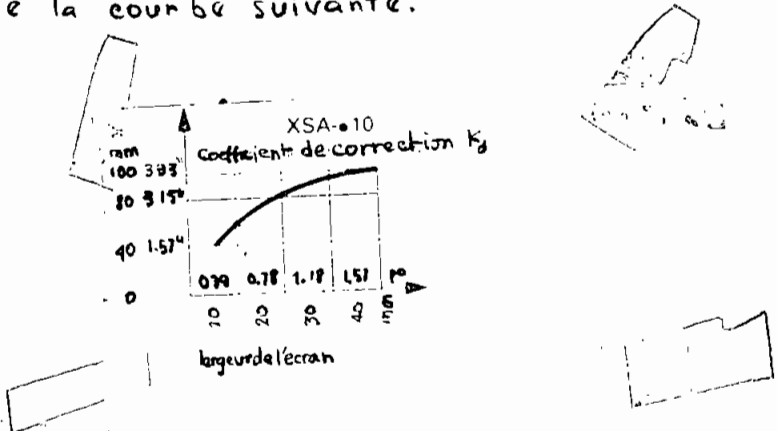 e la courbe suivante.
XSA-•10
mm
Coefficient de correction Kd
100 393"
80 315"
40 1.57"
0
039 0.78 1.18 1,57 po
10 20 30 40 mm
largeur de l'écran